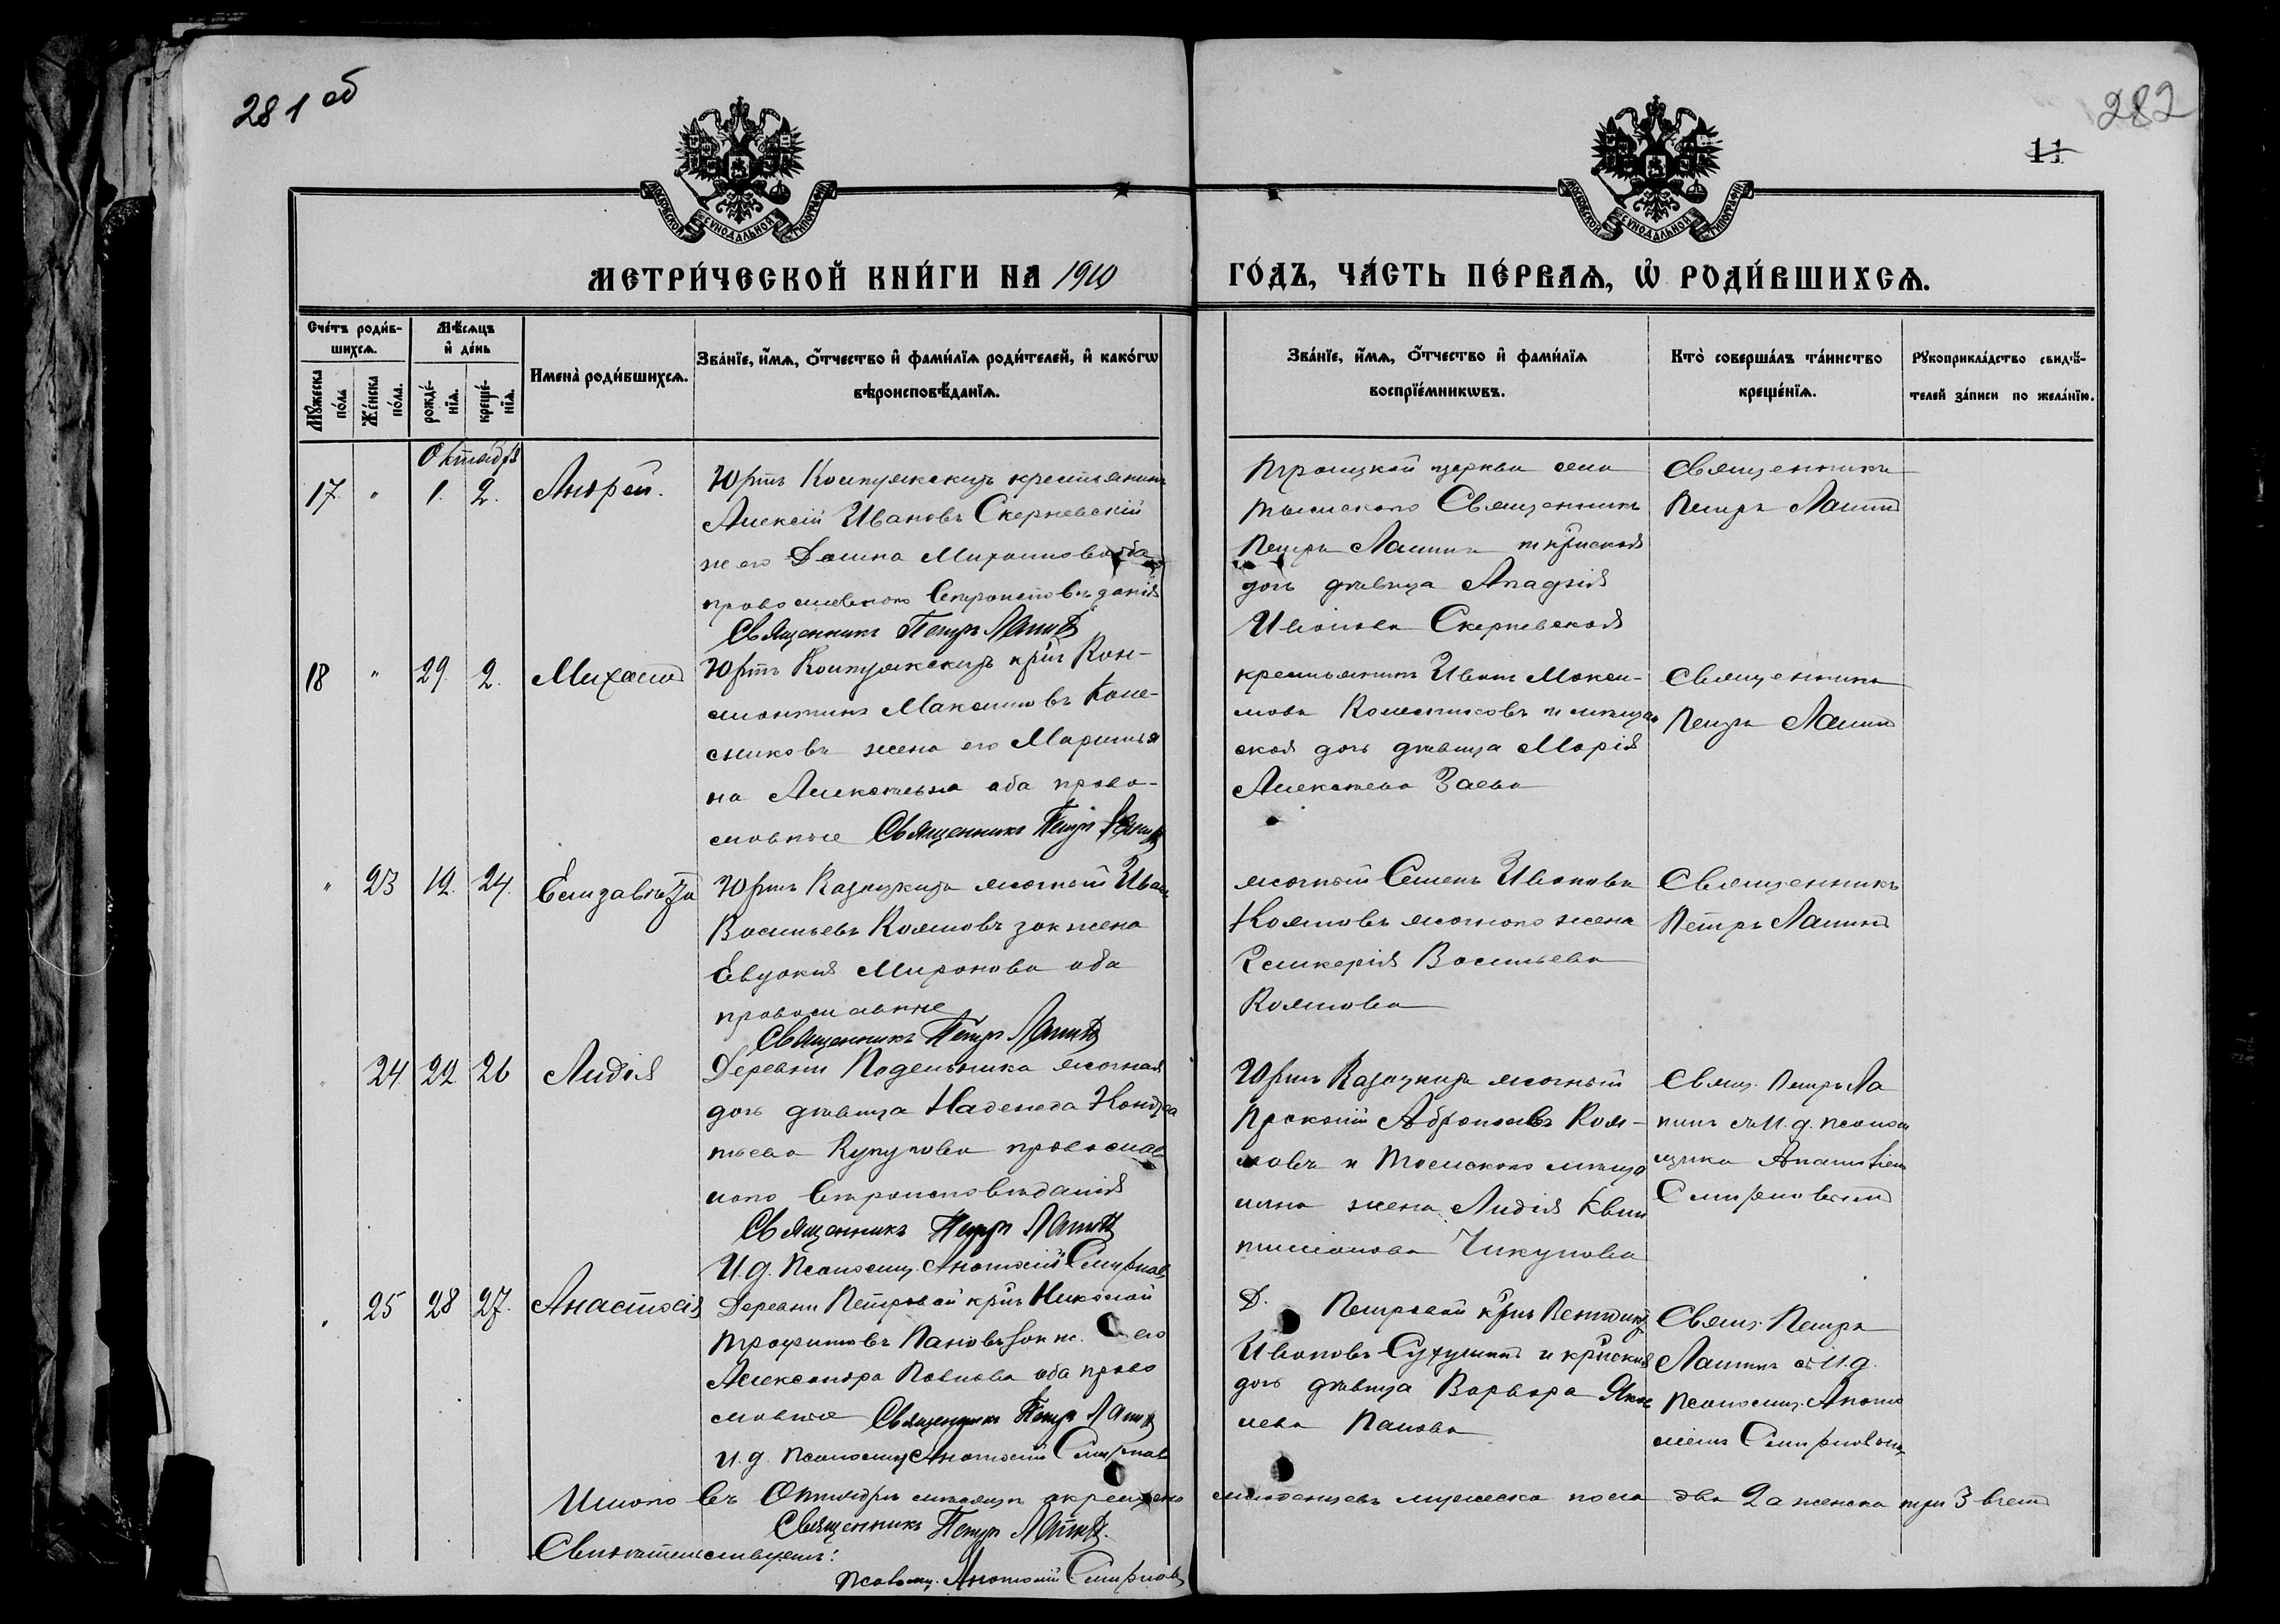 281 об
282
11
МОСКОВСКОЙ СѴНОДАЛЬНОЙ ТИПОГРАФІИ
МОСКОВСКОЙ СѴНОДАЛЬНОЙ ТИПОГРАФІИ
МЕТРИ́ЧЕСКОЙ КНИ́ГИ НА 1910
ГО́ДЪ, ЧА́СТЬ ПЕ́РВАѦ, Ѡ҆ РОДИ́ВШИХСѦ.
Сче́тъ роди́в-
шихсѧ.
Мꙋ́жеска по́ла
Же́нска по́ла.
Мѣ́сѧцъ
и҆ де́нь
рожде́-
нїѧ.
креще́-
нїѧ.
Имена̀ роди́вшихсѧ.
Зва́нїе, и҆́мѧ, ѻ҆́тчество и҆ фами́лїѧ роди́телей, и҆ како́гѡ
вѣроисповѣ́данїѧ.
Зва́нїе, и҆́мѧ, ѻ҆́тчество и҆ фами́лїѧ
воспрїе́мникѡвъ.
Кто̀ соверша́лъ та́инство
креще́нїѧ.
Рꙋкоприкла́дство свидѣ́-
телей за́писи по жела́нїю.
Октября
17 " 1. 2. Андрей.
Юртъ крестьянинъ
Алексій Ивановъ Скерневскій
же его Домна Миронова оба
православнаго вѣроисповѣданія
Священникъ Петръ Лапинъ
Троицкой церкви села
Тымскаго Священникъ
Петръ Лапинъ и кр̃иская
дочь дѣвица
Иванова Скерневская
Священникъ
Петръ Лапинъ
18 " 29. 2. Михаилъ
Юртъ кр̃нъ Кон-
стантинъ Максимовъ Коле-
сниковъ жена его Маріамъ
на Алексѣевна оба право-
славные Священникъ Петръ Лапинъ
крестьянинъ Иванъ Макси-
мовъ Колесниковъ и мѣщан
ская дочь дѣвица Марія
Алексѣева Заева
Священникъ
Петръ Лапинъ
" 23 19. 24. Елизавѣта
Юртъ ясачный Иванъ
Васильевъ Колмовъ зак жена
Евдокія Миронова оба
православные
Священникъ Петръ Лапинъ
ясачный Семенъ Ивановъ
ясачнаго жена
Гликерія Васильева
Священникъ
Петръ Лапинъ
" 24 22 26 Лидія
Деревни Подельника ясачная
дочь дѣвица Надежда Кондра
тьева православ
наго вѣроисповѣданія
Священникъ Петръ Лапинъ
И. д. Псаломщ. Анатолій Смирновъ
Юртъ ясачный
Прокопій
мовъ и Томскаго мѣща
нина жена Лидія
Чикунова
Свящ. Петръ Ла
пинъ съ И. д. псалом
щика Анатоліемъ
Смирновымъ
" 25 28 27. Анастасія
Деревни Петровой кр̃нъ Николай
Трофимовъ Пановъ зак ж. его
Александра Павлова оба право
славные Священникъ Петръ Лапинъ
и. д. псаломщ Анатолій Смирновъ
Д. Петровой кр̃нъ
Ивановъ Сухушинъ и кр̃иская
дочь дѣвица Варвара Яков
лева Панова
Свящ. Петръ
Лапинъ съ И. д.
Псаломщ. Анато
ліемъ Смирновымъ
Итого въ Октябрѣ мѣсяцѣ окрещено младенцевъ мужеска пола два 2 а женска три 3 всего
Священникъ Петръ Лапинъ.
Свидѣтельствуемъ:
Псаломщ. Анатолій Смирновъ